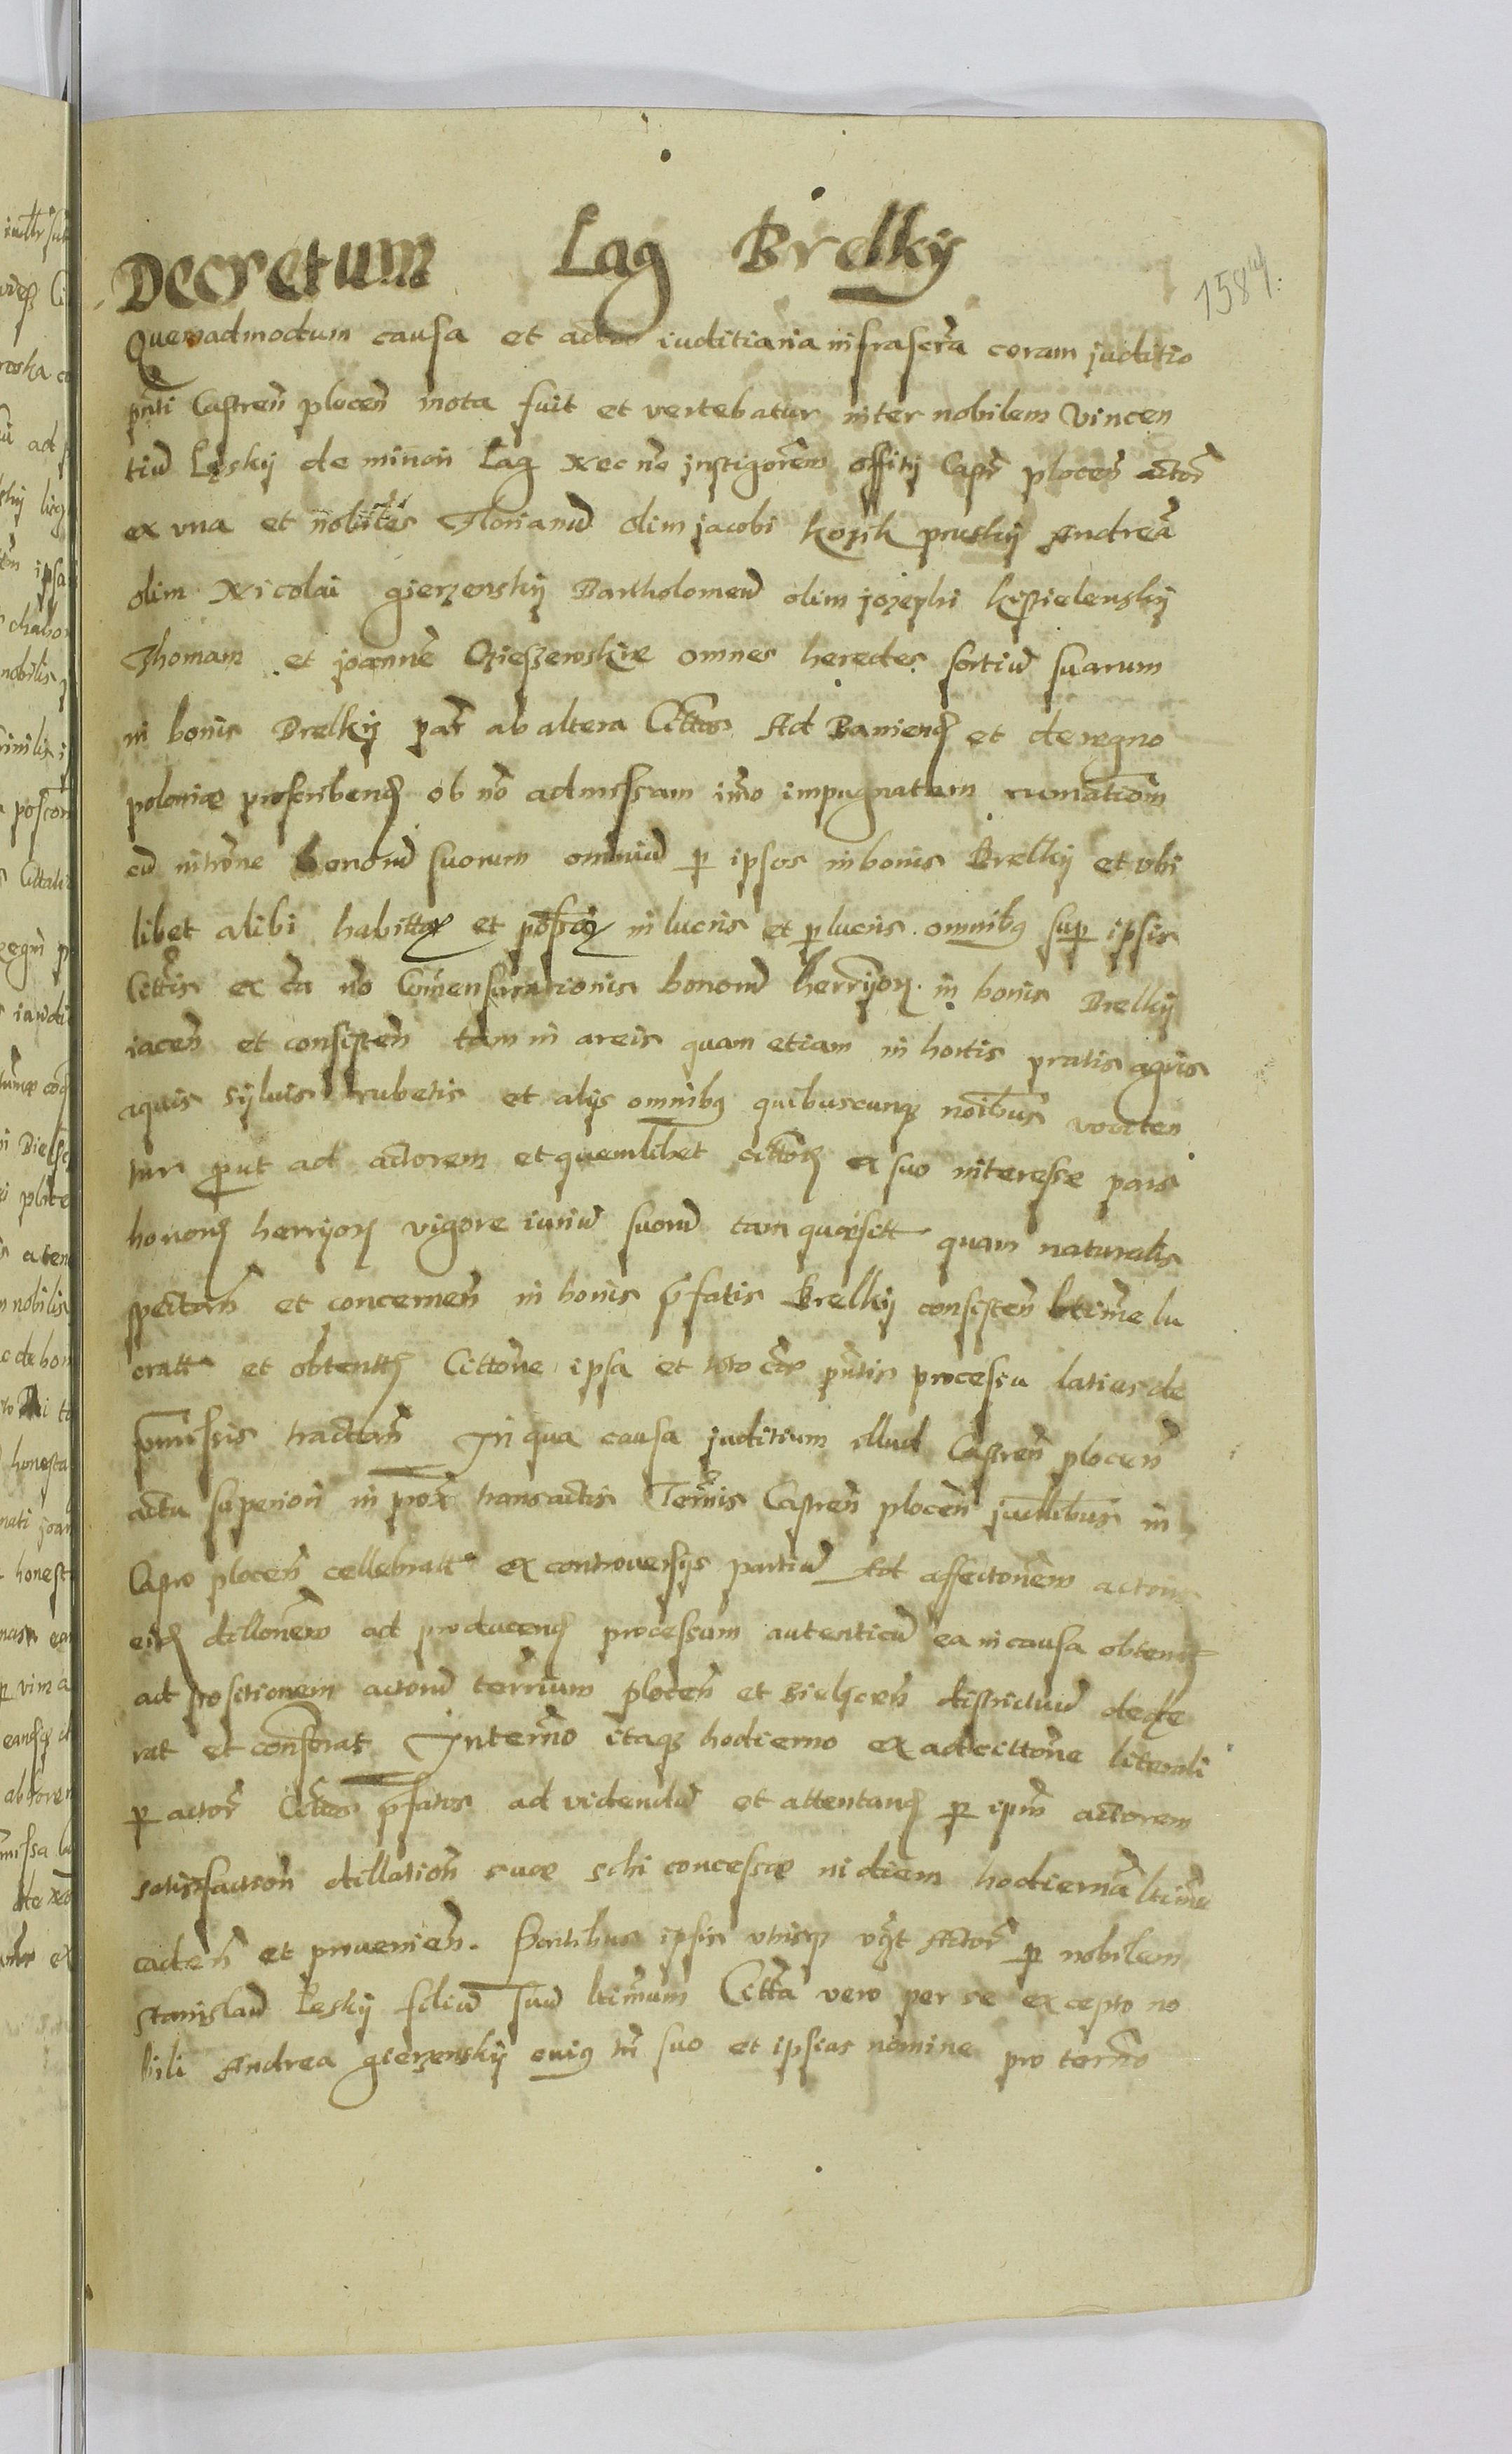 Lag Brelky
Decretum
1584.
Quemadmodum causa et actio iuditiaria infrascra coram juditio
pnti Castren plocen mota fuit et vertebatur inter nobilem Vincen
tiu Lęsky de minori Lag Nec no instigorem offitij Capt plocen actor
ex vna et nobiles Florianu olim jacobi kozik prusky Andrea
olim Nicolai gierzensky Bartholomeu olim jozephi kisielensky
Thomam et joanne omnes heredes sortiu suarum
in bonis Brelky par ab altera Cittos Ad Baniend et de regno
poloniæ proscribend ob no admissam imo impugnatam rumationem
bonoru suorum omniu p ipsos in bonis Brelky et vbi
libet alibi habittar et possar in lucris et p lucris omnibus sup ipsis
Cittis ex ca no Comensurationis bonoru herrijor in bonis Brelky
iacen et consisten tam in areis quam etiam in hortis pratis agris
aquis syluis rubetis et alijs omnibus quibuscunq noibus vociten
tur prout ad actorem et quemlibet cittor ex suo interesse pars
bonor herrijor vigore iuriu suoru tam quæsitt quam naturalis
spectan et concernen in bonis pfatis Brelky consisten ltime lu
cratt et obtentt Cittone ipsa et toto cæ pntis processu latius de
pmissis tractan In qua causa juditium illud Castren plocen
actu superiori in prox transactis Termis Castren plocen juditlibus in
Castro plocen cellebratt ex controuersijs partiu Ad affectationem actoris
eid dillonem ad producend processum autenticu ea in causa obtent
ad positionem actoru terrium plocen et Bielscen districtuu dede
rat et conserat In termo itaq hodierno ex adcittone literali
p actor Cittos pfatos ad videndu et attentand p ipm actorem
satisfaction dillation suæ sibi concessæ in diem hodierna ltime
caden et prouenien. Partibus ipsis vtrisq vgt Actor p nobilem
Stanislau Lesky filiu suu ltimum Citta vero per se excepto no
bili Andrea gierzensky cuius tn suo et ipsius nomine pro termo